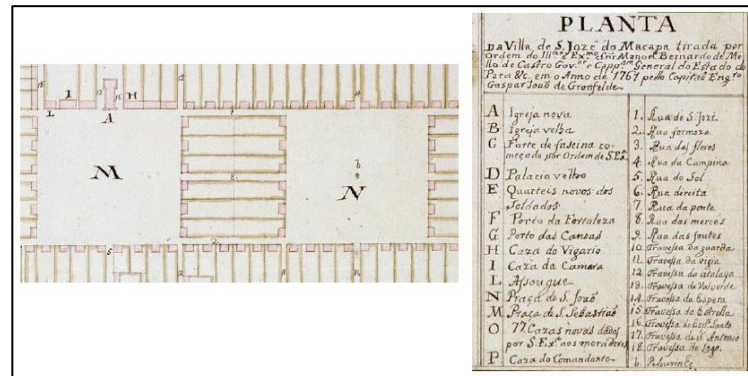 PLANTA
DA Villa de S. Jozé do Macapa tirada por
Ordem do Ill.mo e Ex.mo Snr Manoel Bernardo de Me
llo de Castro Gov.or e Capp.am General do Estado do
Para &c. em o Anno de 1761 pello Capitão Eng.ro
Gaspar João de Gronfelde.
A Igreja nova
B Igreja velha
C Forte de fascina co
meçado por Ordem de S. Ex.a
D Palacio velho
E Quarteis novos dos
Soldados
F Porto da Fortaleza
G Porto das Canoas
H Caza do Vigario
I Caza da Camara
L Assougue
N Praça de S. João
M Praça de S. Sebastião
O 77 Cazas novas dadas
por S. Ex.a aos moradores
P. Caza do Comandante
1. Rua de S. Jozé
2. Rua formoza
3. Rua das flores
4. Rua da Campina
5. Rua do Sol
6. Rua direita
7. Rua da ponte
8. Rua das merces
9. Rua das fontes
10. Travessa da guarda
11. Travessa da vigia
12. Travessa da atalaya
13. Travessa de Valverde
14. Travessa da Espera
15. Travessa da Estrella
16. Travessa do Esp.to Santo
17. Travessa de S. Antonio
18. Travessa do
b. Pelourinho
L I A H
M N
b